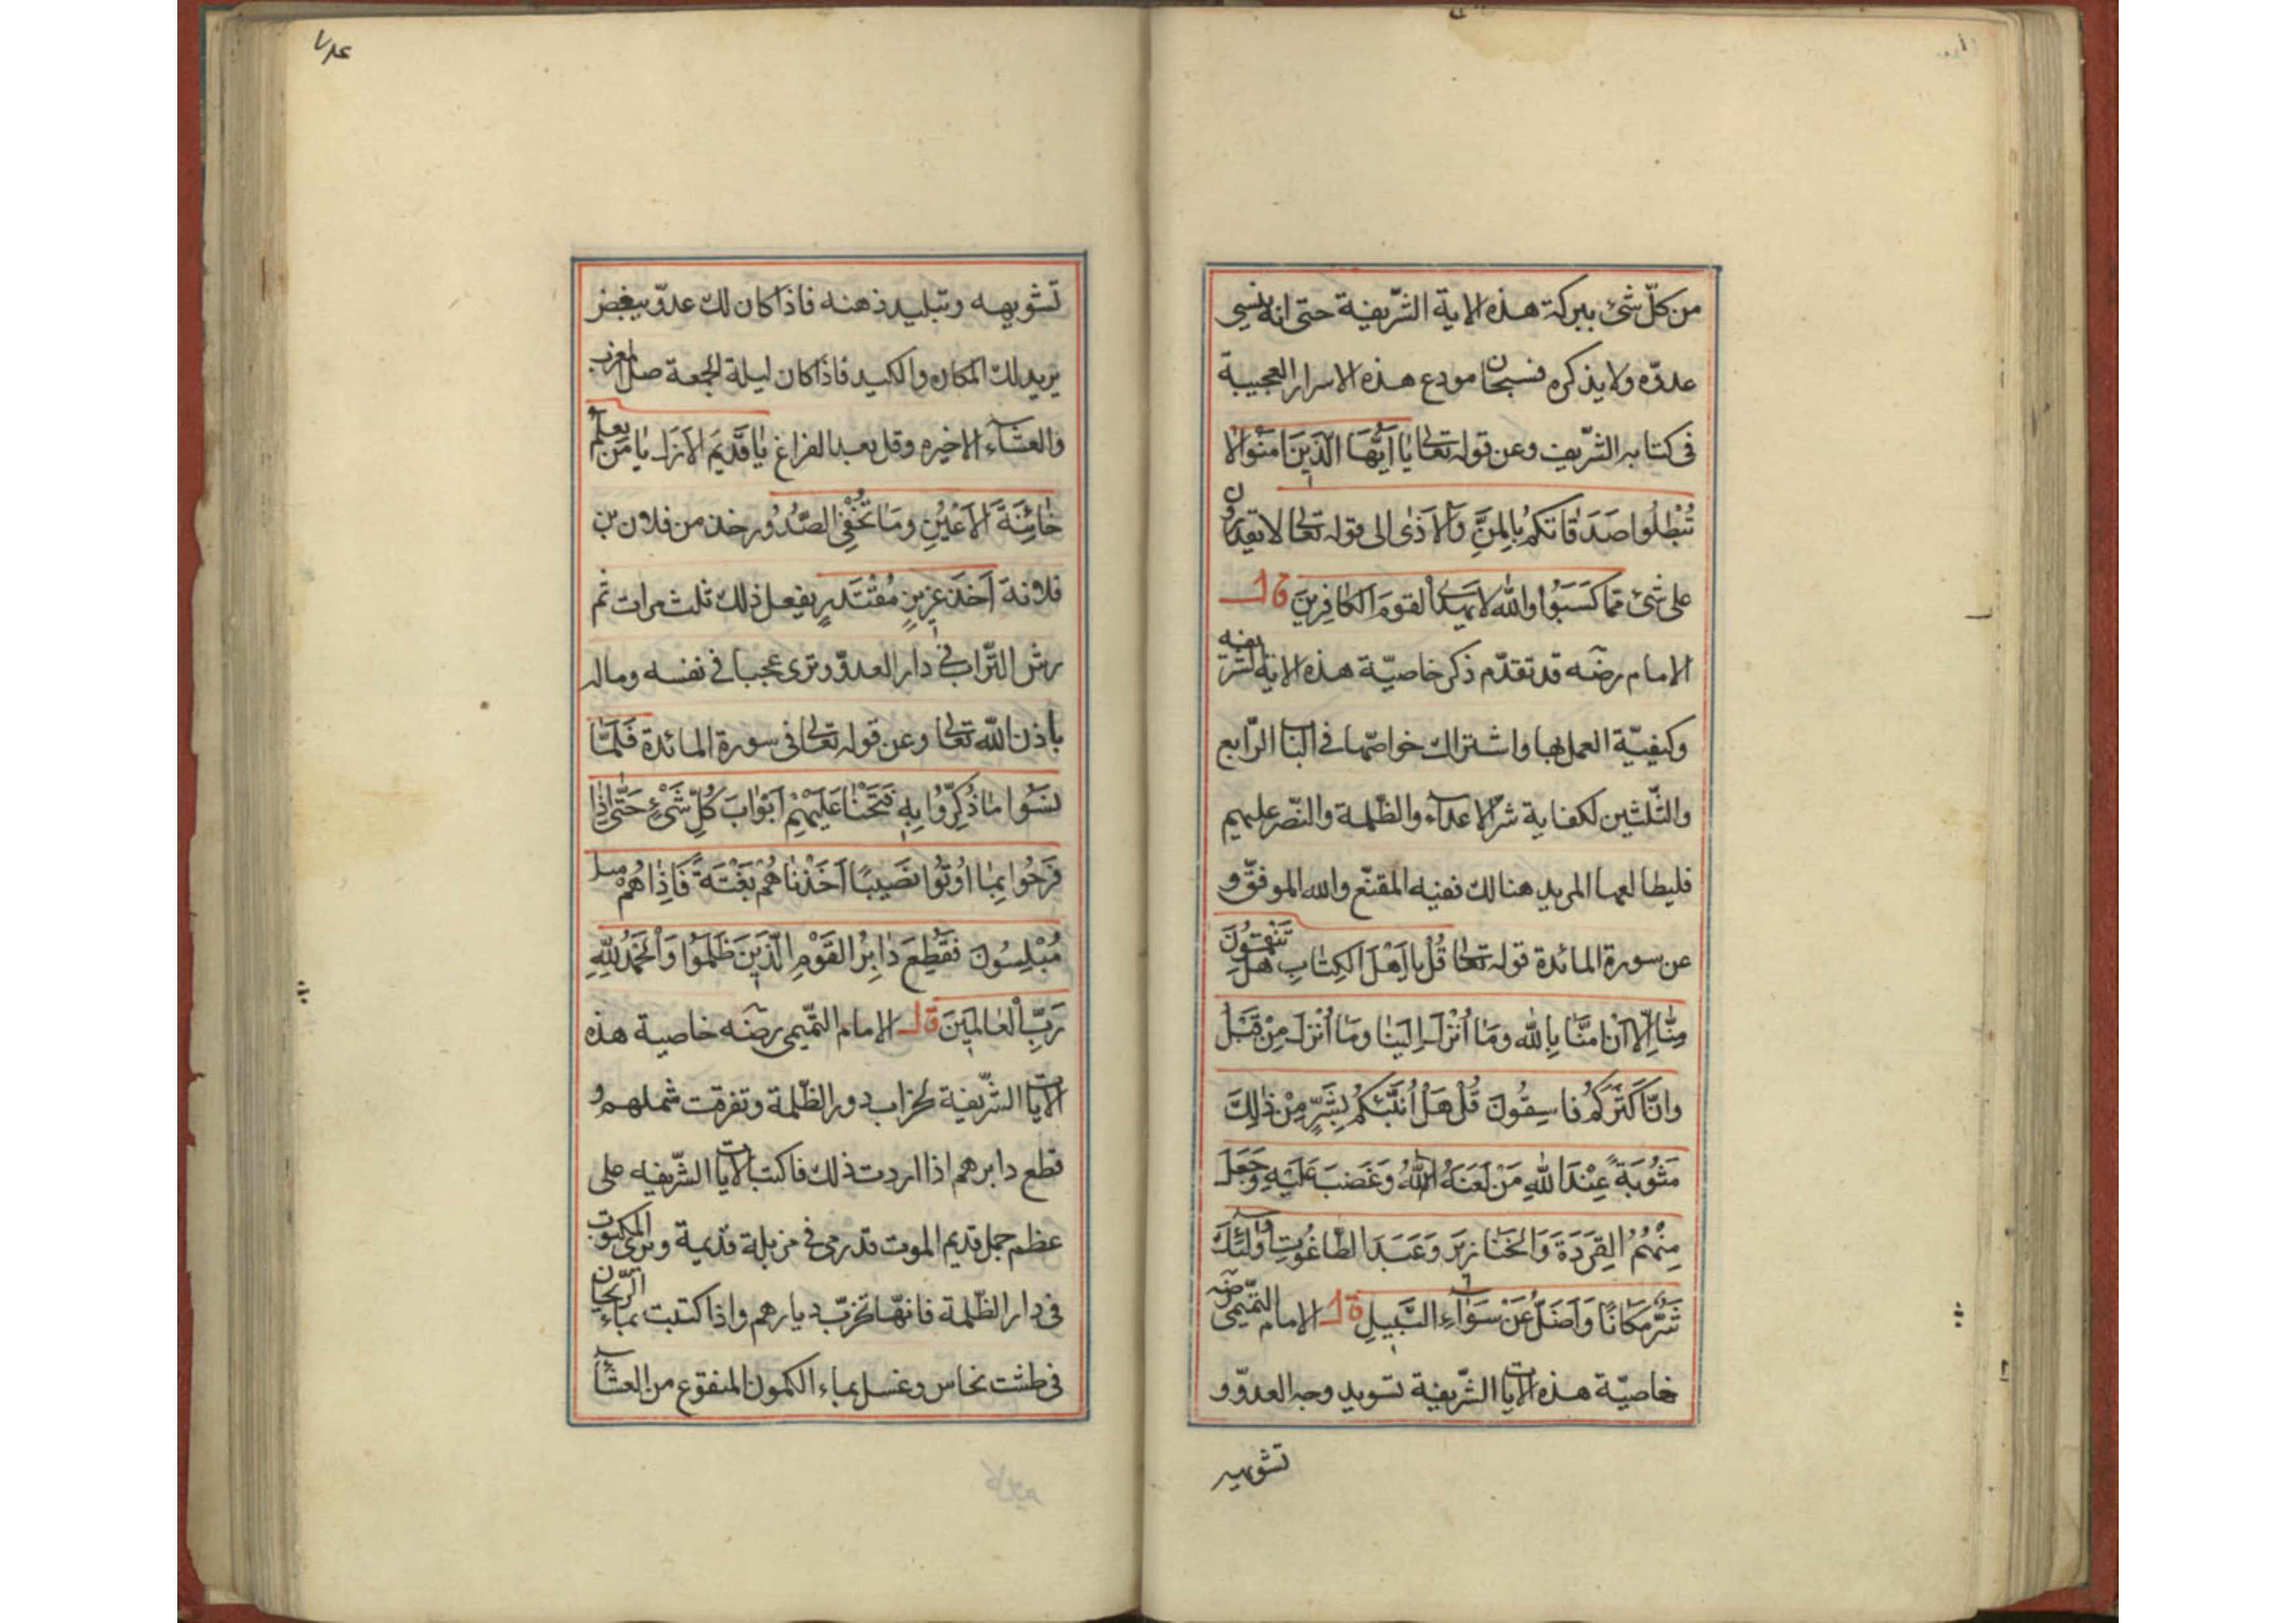 من كلّ شئ ببركة هذه الاية الشّريفة حتى انه ينسى
عدوّه ولا يذكره فسبحان مودع هذه الاسرار العجيبة
فى كتابه الشّريف وعن قوله تعالى يا ايّها الّذين امنوا لا
تُبْطِلُوا صَدَقَاتكُم بِالمَنِّ وَالاَذٰى الى قوله تعالى لا يقدرون
على شئ ممّا كَسَبُوا والله لا يهدى القومَ الكافِرِينَ قال
الامام رضه قد تقدّم ذكر خاصيّة هذه الاية الشريفه
وكيفيّة العمل بها واشتراك خواصّها فى الباب الرّابع
والثّلثين لكفاية شرّ الاعداء والظّلمة والنّصر عليهم
فليطالعها المريد هنالك ففيه المقنّع والله الموفّق و
عن سورة المائدة قوله تعالى قُل يا اَهْلَ الكِتابِ هَلْ تَنْقِمُونَ
مِنّا اِلّا اَنْ امَنّا بِالله وَمَا اُنْزِلَ اِلَينا وَمَا اُنْزِلَ مِنْ قَبْلُ
وانّ اَكثَرَكُم فاسِقُونَ قُلْ هَلْ اُنَبِّئكُم بِشَرٍّ مِنْ ذٰلِكَ
مَثُوبَةً عِنْدَ اللهِ مَنْ لَعَنَهُ اللهُ وَغَضَبَ عَلَيْهِ وَجَعَلَ
مِنْهُمُ القِرَدَةَ وَالخَنَازيرَ وَعَبَدَ الطّاغُوتِ اُولٰئِكَ
شَرٌّ مَكَانًا وَاَضَلُّ عَنْ سَوَاءِ السَّبِيلِ قال الامام التّميمى رضه
خاصيّة هذه الايات الشّريفة تسويد وجه العدوّ و
تشويهه
٧٨٤
تشويهه وتبليد ذهنه فاذا كان لك عدوّ يبغض
يريد لك المكاره والكيد فاذا كان ليلة الجمعة صل المغرب
والعشاء الاخيره وقل بعد الفراغ يا قَديَم الاَزَل يا مَن يعلم
خائِنَةَ الاَعْيُنِ ومَا تُخْفِى الصُّدُور خذ من فلان بن
فلانة اَخذَ عَزِيزٍ مُقْتَدرٍ يفعل ذلك ثلث مرات ثم
رش التّراب فى دار العدوّ وترى عجبا فى نفسه وماله
باذن الله تعالى وعن قوله تعالى فى سورة المائدة فَلَمّا
نسَوا ما ذُكِّرُوا بِهِ فَتَحْنا عَلَيْهِمْ اَبْوابَ كُلِّ شَىْءٍ حَتّى اِذا
فَرَحُوا بِما اوُتُوا نصَيبًا اَخَذْناهُمْ بَغْتَةً فَاِذا هُمْ
مُبْلِسُونَ فَقُطِعَ دابِرُ القَوْمِ الّذِينَ ظَلَمُوا وَالْحَمدُ لِلّٰهِ
رَبِّ العالمِينَ قال الامام التّميمى رضه خاصية هذه
الايات الشّريفة لخراب دور الظّلمة وتفرقت شملهم و
قطع دابرهم اذا اردت ذلك فاكتب الايات الشّريفه على
عظم جمل قديم الموت قد رمى فى مزبلة قديمة ورمى المكتوب
فى دار الظّلمة فانّها تخرّب ديارهم واذا كتبت بماء الرّيحان
فى طشت نحاس وغسل بماء الكمون المنقوع من العشاء